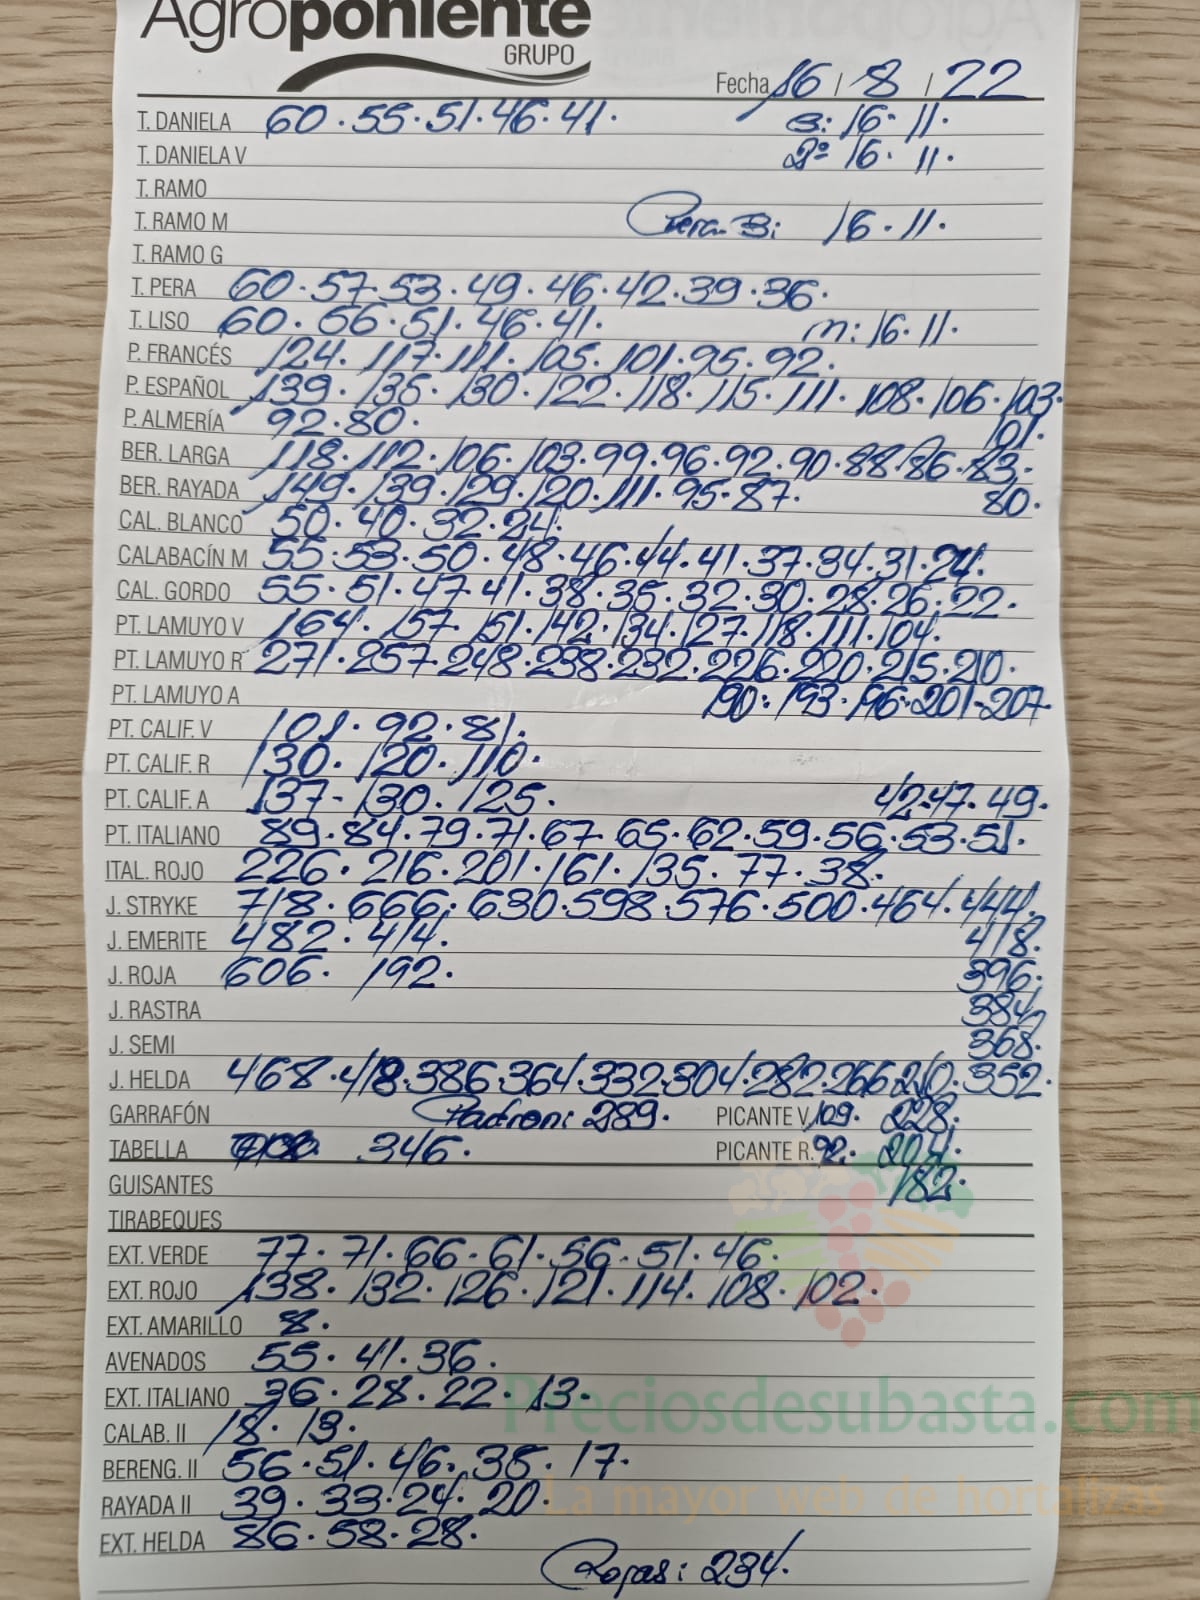 Agroponiente
GRUPO
Fecha 16 / 8 / 22
T. DANIELA 60.55.51.46.41. B: 16.11.
T. DANIELA V 2º 16.11.
T. RAMO
T. RAMO M Pera B: 16.11.
T. RAMO G
T. PERA 60.57.53.49.46.42.39.36.
T. LISO 60.56.51.46.41. m: 16.11.
P. FRANCÉS 124.117.111.105.101.95.92.
P. ESPAÑOL 139.135.130.122.118.115.111.108.106.103.
P. ALMERÍA 92.80. 101.
BER. LARGA 118.112.106.103.99.96.92.90.88.86.83.
BER. RAYADA 149.139.129.120.111.95.87. 80.
CAL. BLANCO 50.40.32.24.
CALABACÍN M 55.53.50.48.46.44.41.37.34.31.24.
CAL. GORDO 55.51.47.41.38.35.32.30.28.26.22.
PT. LAMUYO V 164.157.151.142.134.127.118.111.104.
PT. LAMUYO R 271.257.248.238.232.226.220.215.210.
PT. LAMUYO A 190.193.196.201.207.
PT. CALIF. V 101.92.81.
PT. CALIF. R 130.120.110.
PT. CALIF. A 137-130.125. 42.47.49.
PT. ITALIANO 89.84.79.71.67.65.62.59.56.53.51.
ITAL. ROJO 226.216.201.161.135.77.38.
J. STRYKE 718.666.630.598.576.500.464.444.
J. EMERITE 482.414. 418.
J. ROJA 606. 192. 396.
J. RASTRA 384.
J. SEMI 368.
J. HELDA 468.418.386.364.332.304.282.266.210.352.
GARRAFÓN Padron: 289. PICANTE V. 109. 228.
TABELLA 346. PICANTE R. 92. 204.
GUISANTES 182.
TIRABEQUES
EXT. VERDE 77.71.66.61.56.51.46.
EXT. ROJO 138.132.126.121.114.108.102.
EXT. AMARILLO 8.
AVENADOS 55.41.36.
EXT. ITALIANO 36.28.22.13.
Preciosdesubasta.com
CALAB. II 18.13.
BERENG. II 56.51.46.35.17.
RAYADA II 39.33.24.20.
La mayor web de hortalizas
EXT. HELDA 86.58.28.
Rojas: 234.